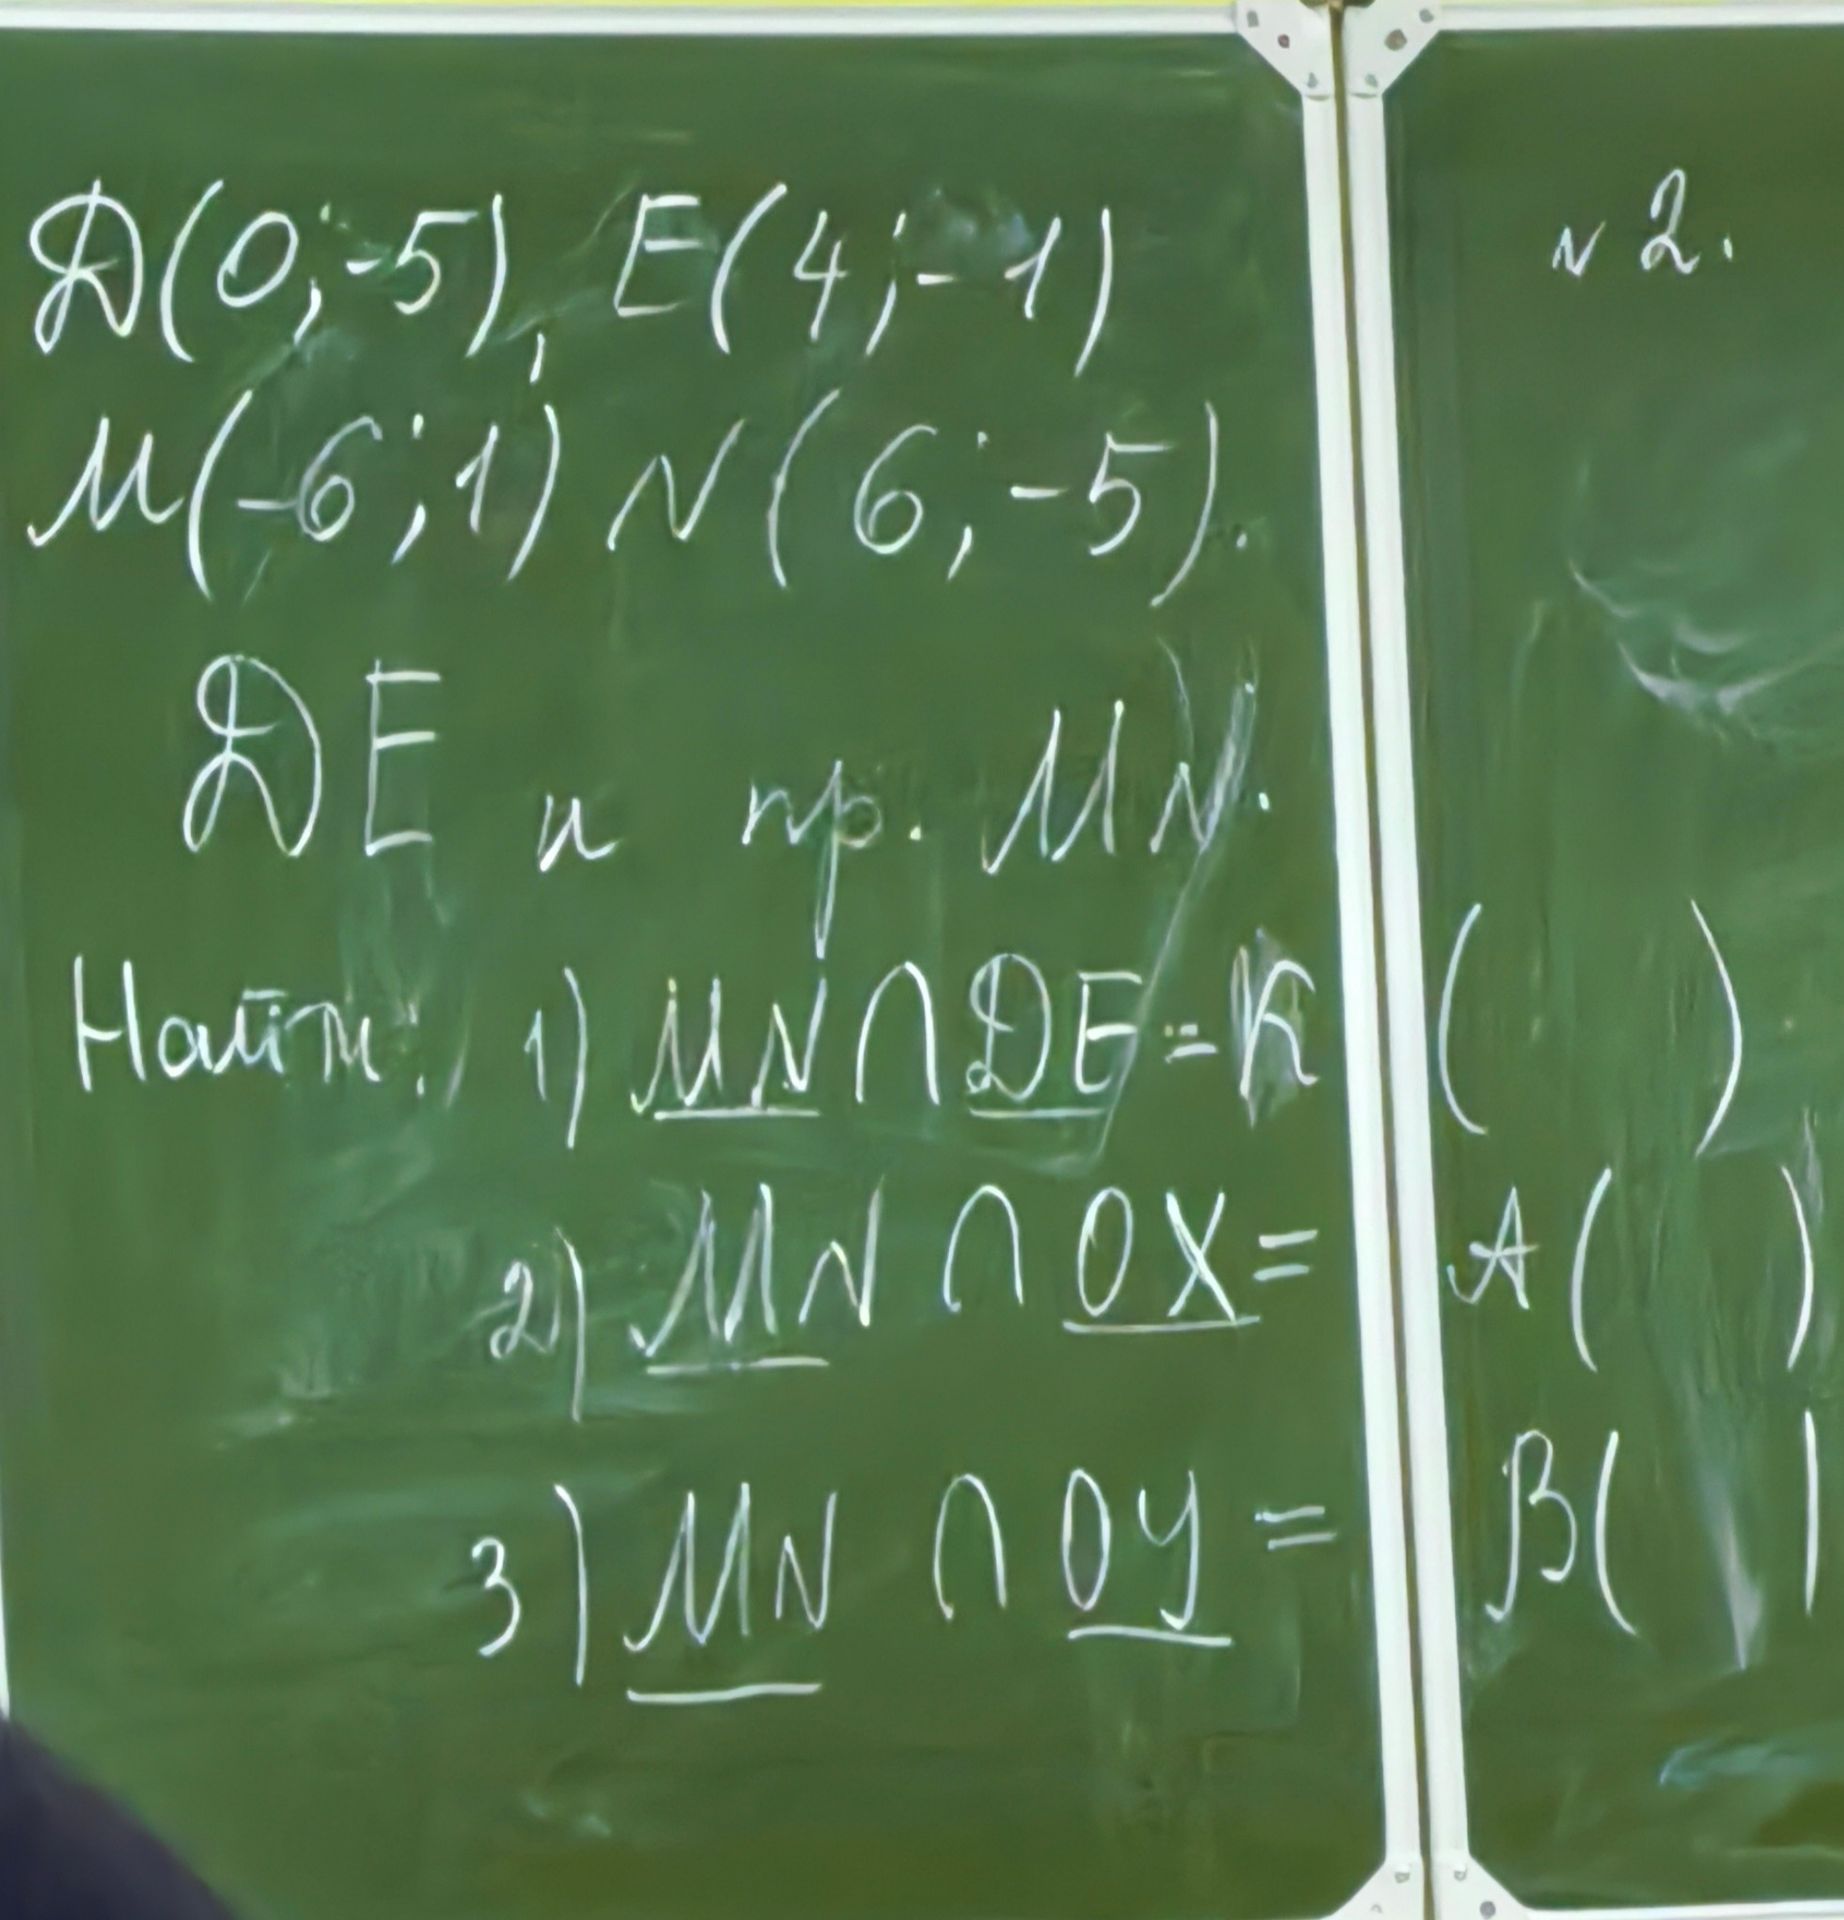 D(0;-5), E(4;-1)
M(-6;1) N(6;-5).
DE и пр. MN.
Найти: 1) MN ∩ DE = K ( )
2) MN ∩ OX = A ( )
3) MN ∩ OY = B ( )
N 2.